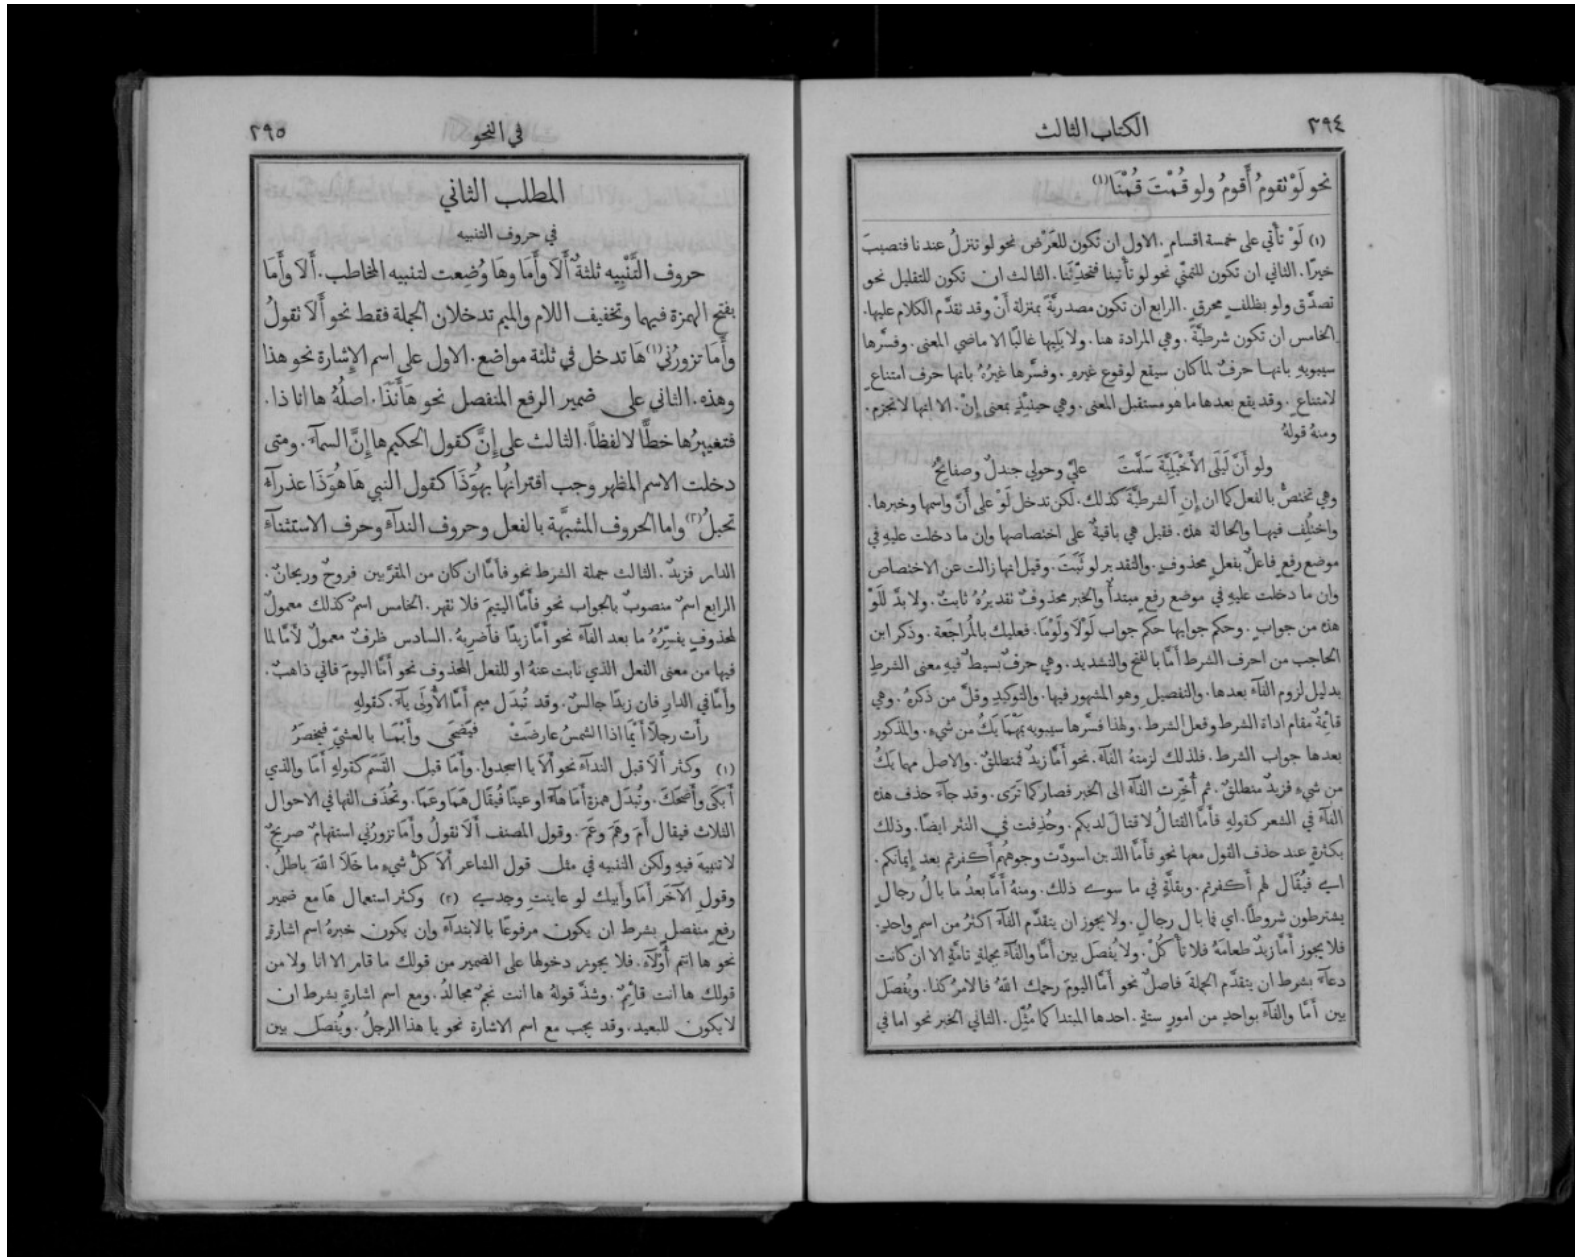 ٣٩٤
الكتاب الثالث
نحو لَوْ تقومُ أَقومُ ولو قُمْتَ قُمْنَا(١)
(١) لَوْ تأتي على خمسة اقسامٍ. الاول ان تكون للعَرْض نحو لو تنزلُ عندنا فتصيبَ
خيرًا. الثاني ان تكون للتمنّي نحو لو تأتينا فتحدِّثَنا. الثالث ان تكون للتقليل نحو
تصدَّق ولو بظلفٍ محرقٍ. الرابع ان تكون مصدريَّةً بمنزلة أَنْ وقد تقدَّم الكلام عليها.
الخامس ان تكون شرطيَّةً. وهي المرادة هنا. ولا يَلِيها غالبًا الا ماضي المعنى. وفسَّرها
سيبويهِ بانها حرفٌ لما كان سيقع لوقوع غيرهِ. وفسَّرها غيرُهُ بانها حرف امتناعٍ
لامتناعٍ. وقد يقع بعدها ما هو مستقبل المعنى. وهي حينئِذٍ بمعنى إِنْ. الا انها لا تجزم.
ومنهُ قولهُ
ولو أَنَّ لَيلَى الأَخيَليَّةَ سَلَّمت عليَّ وحولي جندلٌ وصفائحُ
وهي تختصُّ بالفعل كما ان إِنِ الشرطيَّة كذلك. لكن تدخل لَوْ على أَنَّ واسمها وخبرها.
واختُلِف فيها والحالة هذه. فقيل هي باقيةٌ على اختصاصها وان ما دخلت عليهِ في
موضع رفعٍ فاعلٌ بفعلٍ محذوفٍ. والتقدير لو ثَبَتَ. وقيل انها زالت عن الاختصاص
وان ما دخلت عليهِ في موضع رفعٍ مبتدأٌ والخبر محذوفٌ تقديرُهُ ثابتٌ. ولا بدَّ لِلَوْ
هذه من جوابٍ. وحكم جوابها حكم جواب لَوْلَا ولَوْمَا. فعليك بالمُراجَعة. وذكر ابن
الحاجب من احرف الشرط أَمَّا بالفتح والتشديد. وهي حرفٌ بسيطٌ فيهِ معنى الشرط
بدليل لزوم الفآءِ بعدها. والتفصيلِ وهو المشهور فيها. والتوكيدِ وقلَّ من ذكرهُ. وهي
قائِمةٌ مقام اداة الشرط وفعل الشرط. ولهذا فسَّرها سيبويه بمَهْمَا يَكُ من شيءٍ. والمذكور
بعدها جواب الشرط. فلذلك لزمتهُ الفآءُ. نحو أَمَّا زيدٌ فمنطلقٌ. والاصل مهما يكُ
من شيءٍ فزيدٌ منطلقٌ. ثم أُخِّرت الفآءُ الى الخبر فصار كما تَرَى. وقد جآءَ حذف هذه
الفآءِ في الشعر كقولهِ فأَمَّا القتالُ لا قتالَ لديكم. وحُذِفت في النثر ايضًا. وذلك
بكثرةٍ عند حذف القول معها نحو فأَمَّا الذين اسودَّت وجوهُهم أَكفرتم بعد إِيمانكم.
اي فيُقَال لهم أَكفرتم. وبقلَّةٍ في ما سوى ذلك. ومنهُ أَمَّا بعدُ ما بالُ رجالٍ
يشترطون شروطًا. اي فما بال رجالٍ. ولا يجوز ان يتقدَّم الفآءَ اكثرُ من اسمٍ واحدٍ.
فلا يجوز أَمَّا زيدٌ طعامَهُ فلا تأكُلْ. ولا يُفصَل بين أَمَّا والفآءِ بجملةٍ تامَّةٍ الا ان كانت
دعآءً بشرط ان يتقدَّم الجملةَ فاصلٌ نحو أَمَّا اليومَ رحمك اللهُ فالامر كذا. ويُفصَل
بين أَمَّا والفآءِ بواحدٍ من امورٍ ستةٍ. احدها المبتدا كما مُثِّل. الثاني الخبر نحو اما في
٣٩٥
في النحو
المطلب الثاني
في حروف التنبيه
حروف التَّنْبِيه ثلثةٌ أَلَا وأَمَا وهَا وُضِعت لتنبيه المخاطب. أَلَا وأَمَا
بفتح الهمزة فيهما وتخفيف اللام والميم تدخلان الجملة فقط نحو أَلَا تقولُ
وأَمَا تزورُني(١) هَا تدخل في ثلثة مواضع. الاول على اسم الإِشارة نحو هذا
وهذه. الثاني على ضمير الرفع المنفصل نحو هَأَنَذَا. اصلُهُ ها انا ذا.
فتغييرُها خطًّا لا لفظًا. الثالث على إِنَّ كقول الحكيم ها إِنَّ السمآءَ. ومتى
دخلت الاسم المظهر وجب اقترانُها بهُوَذَا كقول النبي هَا هُوَذَا عذرآءُ
تحبلُ(٢) واما الحروف المشبَّهة بالفعل وحروف الندآءِ وحرف الاستثنآءِ
الدار فزيدٌ. الثالث جملة الشرط نحو فأَمَّا ان كان من المقرَّبين فروحٌ وريحانٌ.
الرابع اسمٌ منصوبٌ بالجواب نحو فأَمَّا اليتيمَ فلا تقهر. الخامس اسمٌ كذلك معمولٌ
لمحذوفٍ يفسِّرُهُ ما بعد الفآءِ نحو أَمَّا زيدًا فاضربهُ. السادس ظرفٌ معمولٌ لأَمَّا لما
فيها من معنى الفعل الذي نابت عنهُ او للفعل المحذوف نحو أَمَّا اليومَ فاني ذاهبٌ.
وأَمَّا في الدار فان زيدًا جالسٌ. وقد تُبدَل ميم أَمَّا الأُولَى يآءً. كقولهِ
رأَت رجلًا أَيْما اذا الشمسُ عارضَتْ فيَضْحَى وأَيْمَا بالعشيِّ فيخصَرُ
(١) وكثر أَلَا قبل الندآءِ نحو أَلَا يا اسجدوا. وأَمَا قبل القَسَم كقولهِ أَمَا والذي
أَبكَى وأَضحكَ. وتُبدَل همزة أَمَا هآءً او عينًا فيُقَال هَمَا وعَمَا. وتُحذَف الفها في الاحوال
الثلاث فيقال أَمَ وهَمَ وعَمَ. وقول المصنف أَلَا تقولُ وأَمَا تزورُني استفهامٌ صريحٌ
لا تنبيهَ فيهِ ولكن التنبيه في مثل قول الشاعر أَلَا كلُّ شيءٍ ما خَلَا اللهَ باطلُ.
وقول الآخَر أَمَا وأَبيك لو عاينتِ وجدي (٢) وكثر استعمال هَا مع ضمير
رفعٍ منفصل بشرط ان يكون مرفوعًا بالابتدآءِ وان يكون خبرهُ اسم اشارةٍ
نحو ها انتم أُولآءِ. فلا يجوز دخولها على الضمير من قولك ما قام الا انا ولا من
قولك ها انت قائِمٌ. وشذَّ قولهُ ها انت نجمٌ مجالدُ. ومع اسم اشارةٍ بشرط ان
لا يكون للبعيد. وقد يجب مع اسم الاشارة نحو يا هذا الرجلُ. ويُفصَل بين